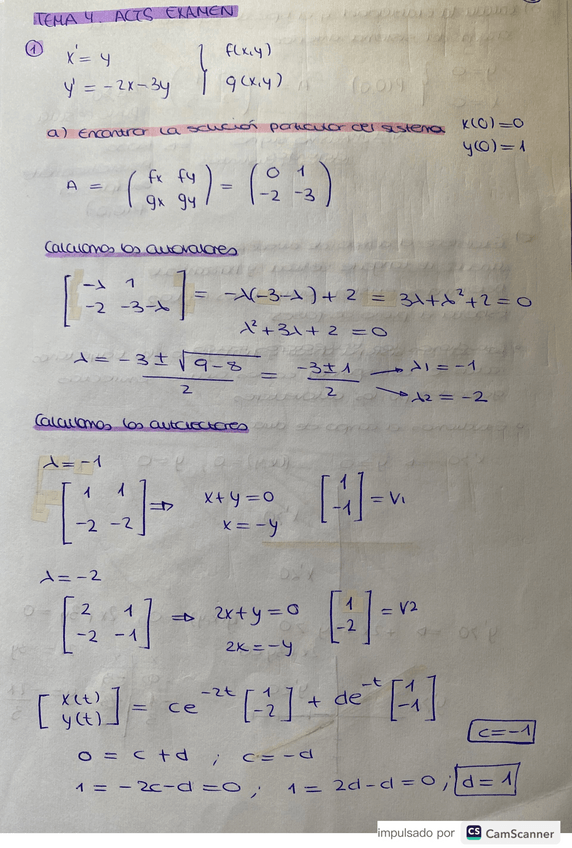 TEMA 4 ACTS EXAMEN
① x' = y } f(x,y)
y' = -2x-3y } g(x,y)
a) Encontrar la solución particular del sistema x(0)=0
y(0)=1
A = ( fx fy ) = ( 0 1 )
( gx gy ) ( -2 -3 )
Calculamos los autovalores
[ -λ 1 ] = -λ(-3-λ)+2 = 3λ+λ²+2=0
[ -2 -3-λ ]
λ²+3λ+2=0
λ = -3 ± √9-8 / 2 = -3±1 / 2 → λ1 = -1
→ λ2 = -2
Calculamos los autovectores
λ=-1
[ 1 1 ] ⇒ x+y=0 [ 1 ] = V1
[ -2 -2 ] x=-y [ -1 ]
λ=-2
[ 2 1 ] ⇒ 2x+y=0 [ 1 ] = V2
[ -2 -1 ] 2x=-y [ -2 ]
[ x(t) ] = ce^-2t [ 1 ] + de^-t [ 1 ]
[ y(t) ] [ -2 ] [ -1 ]
c=-1
0 = c+d ; c=-d
1 = -2c-d=0 ; 1 = 2d-d=0 ; d=1
impulsado por CS CamScanner